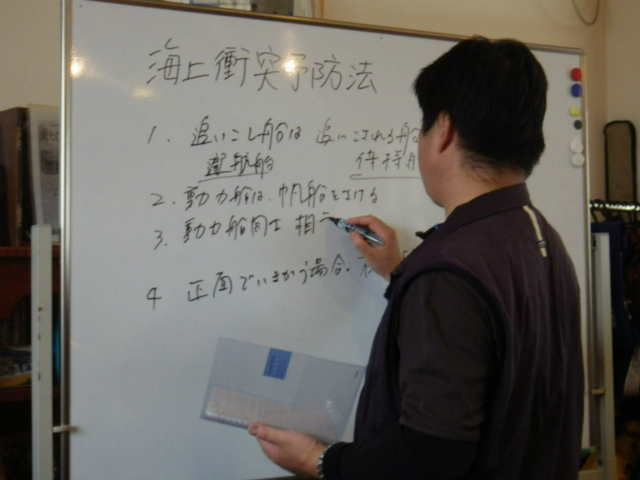 海上衝突予防法
1. 追いこし船は 追いこされる船
避航船 保持船
2. 動力船は、帆船をさける
3. 動力船同士 相
4 正面でいきかう場合、